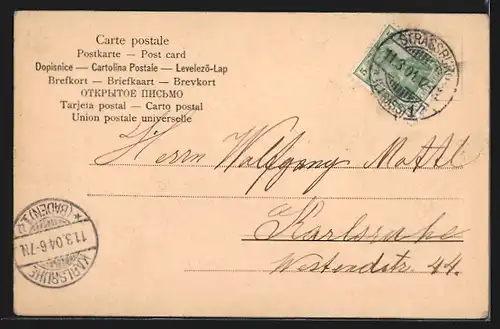 Carte postale
Postkarte — Post card
Dopisnice — Cartolina Postale — Levelező-Lap
Brefkort — Briefkaart — Brevkort
ОТКРЫТОЕ ПИСЬМО
Tarjeta postal — Carto postal
Union postale universelle
STRASSBURG
11.3.04.
5
Herrn Wolfgang Mattl
Karlsruhe
Westendstr. 44.
* (BADEN) 1
11.3.04.6-7N.
KARLSRUHE